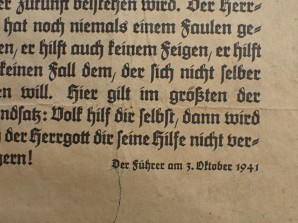 der Zukunft beistehen wird. Der Herr-
hat noch niemals einem Faulen ge-
en, er hilft auch keinem Feigen, er hilft
keinen Fall dem, der sich nicht selber
en will. Hier gilt im größten der
ndsatz: Volk hilf dir selbst, dann wird
der Herrgott dir seine Hilfe nicht ver-
gern!
Der Führer am 3. Oktober 1941